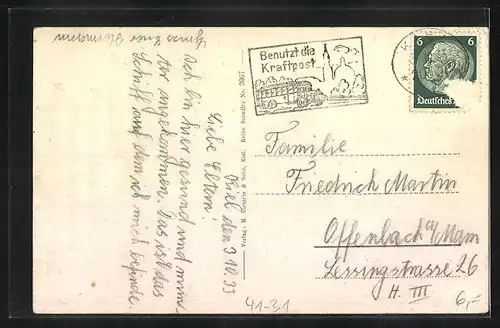 Kiel den 3 10. 33
Liebe Eltern!
Ich bin hier gesund und mun-
ter angekommen. Das ist das
Schiff auf dem ich mich befinde.
Gruss Euer Hermann
Verlag: R. Heteris & Sohn, Kiel. Reihe Seeadler Nr. 3067
Benutzt die
Kraftpost
K
6 6
Deutsches
Familie
Friedrich Martin
Offenbach a/Main
Lessingstrasse 26
H. III
41-31
6,-